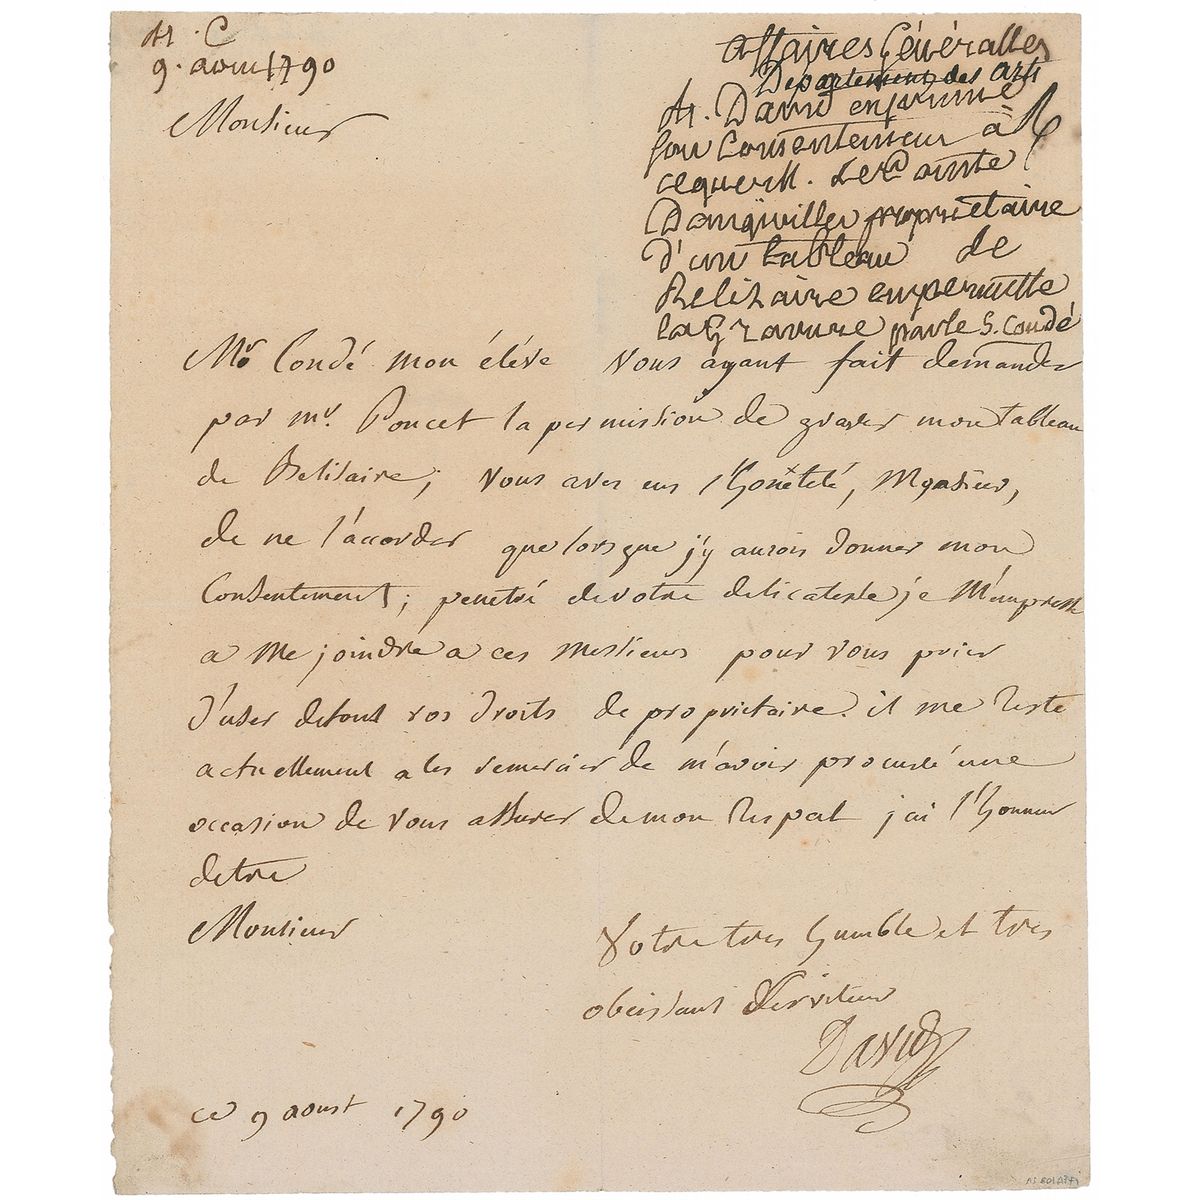 M. C
9. aoust 1790
Monsieur
affaires Généralles
Departement des arts
M. David exprime
son Consentement à
ceque M. Le Comte
Dangiviller proprietaire
d'un tableau de
Belizaire en permette
la Gravure par le S. Condé
Mr. Condé mon élève vous ayant fait demander
par mr. Poncet la permission de graver mon tableau
de Belisaire; vous aves eus l'honêteté, Monsieur,
de ne l'accorder que lorsque j'y aurois donner mon
Consentement; penetré de votre delicatesse je M'empresse
a me joindre a ces messieurs pour vous prier
d'user de tout vos droits de proprietaire. il me reste
actuellement a les remercier de m'avoir procuré une
occasion de vous assurer de mon respect j'ai l'honneur
detre
Monsieur
Votre tres humble et tres
obeissant serviteur
David
ce 9 aoust 1790